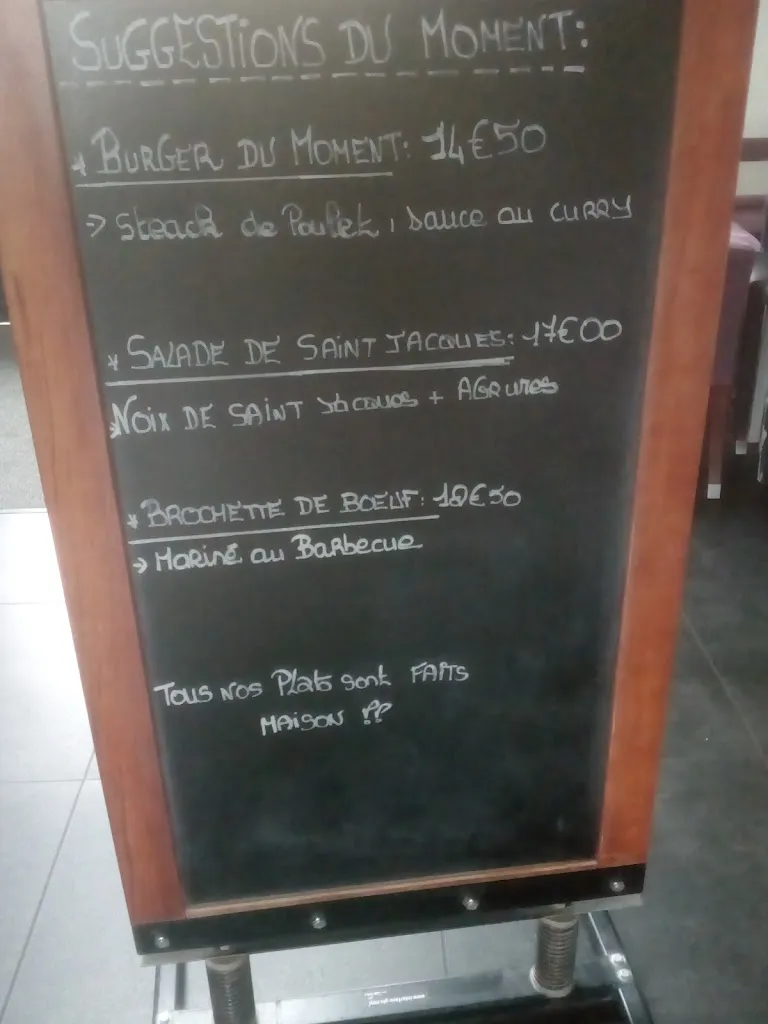 SUGGESTIONS DU MOMENT:
* BURGER DU MOMENT: 14€50
=> Steack de Poulet, sauce au CURRY
* SALADE DE SAINT JACQUES: 17€00
NOIX DE SAINT Jacques + AGRumes
* BROCHETTE DE BOEUF:
-> Mariné au Barbecue
Tous nos Plats sont FAITS
MAISON !!